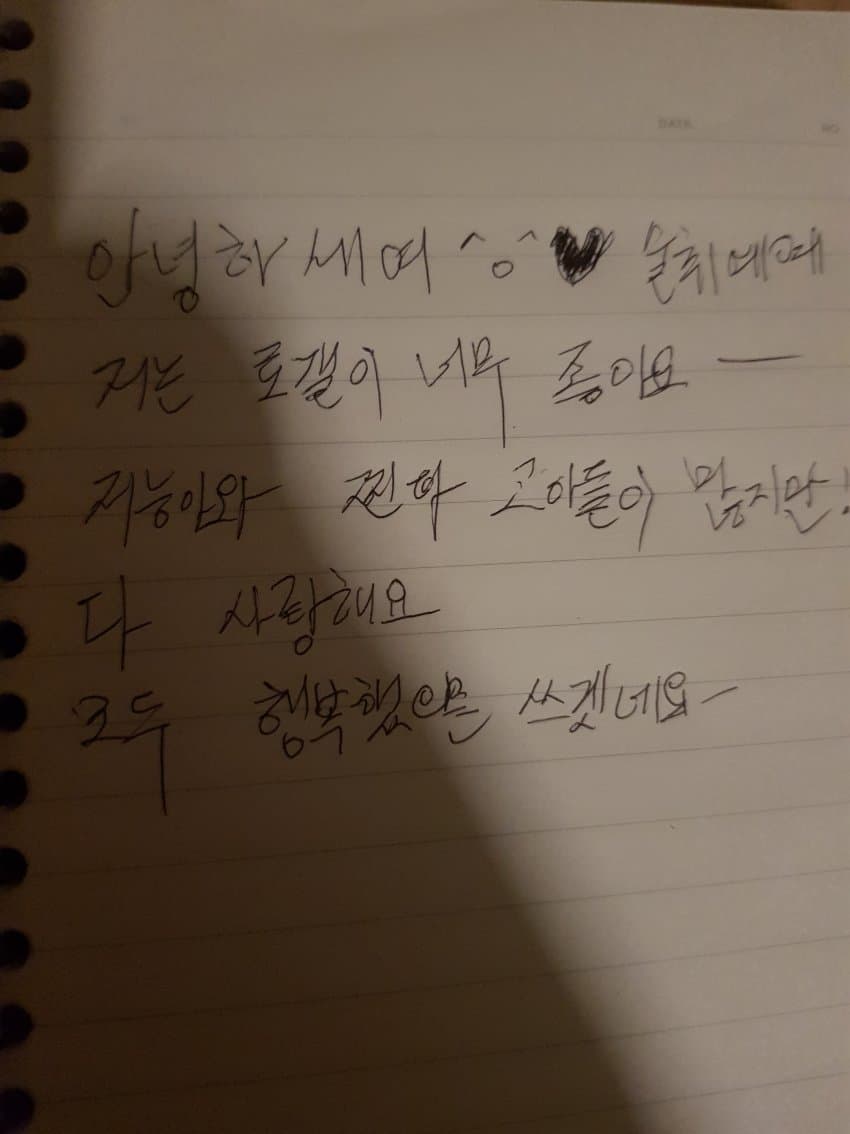 DATE NO
안녕하세여 ^o^ ♥ 술취에예
저는 로갤이 너무 좋아요 ―
저능아와 찐따 고아들이 많지만!
다 사랑해요
모두 행복했으믄 쓰겠네요~